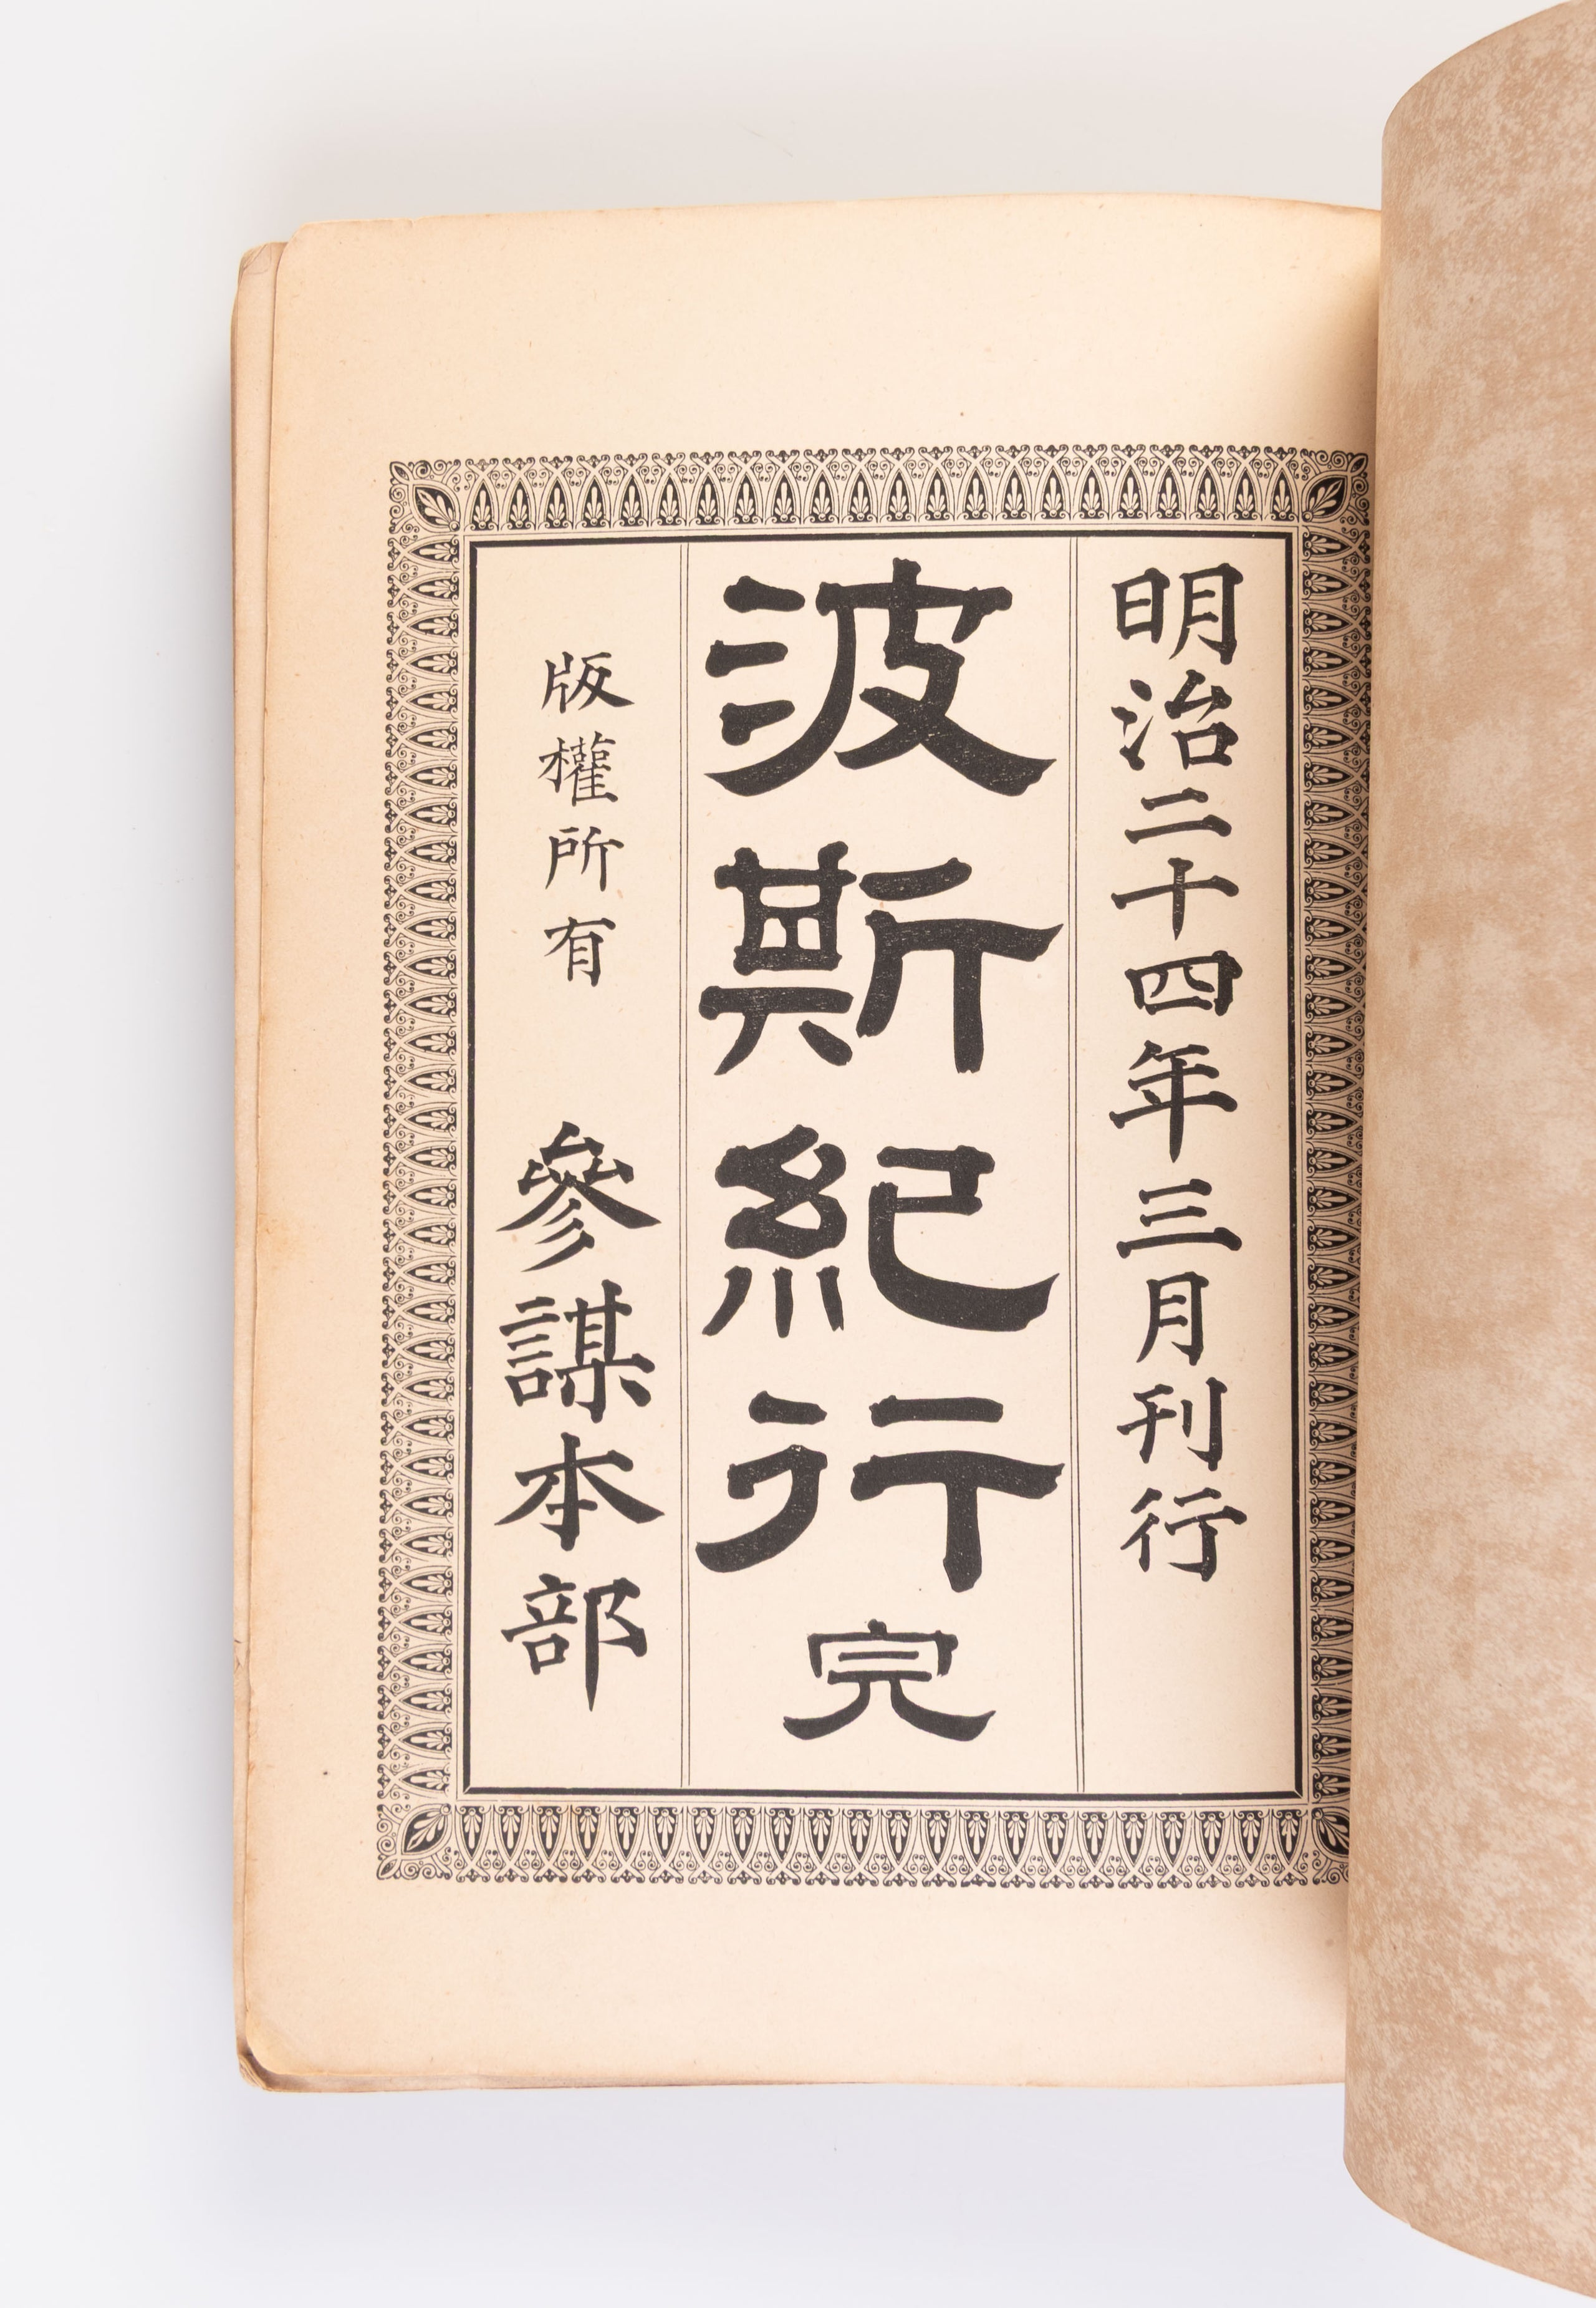 明治二十四年三月刊行
波斯紀行完
版權所有 參謀本部